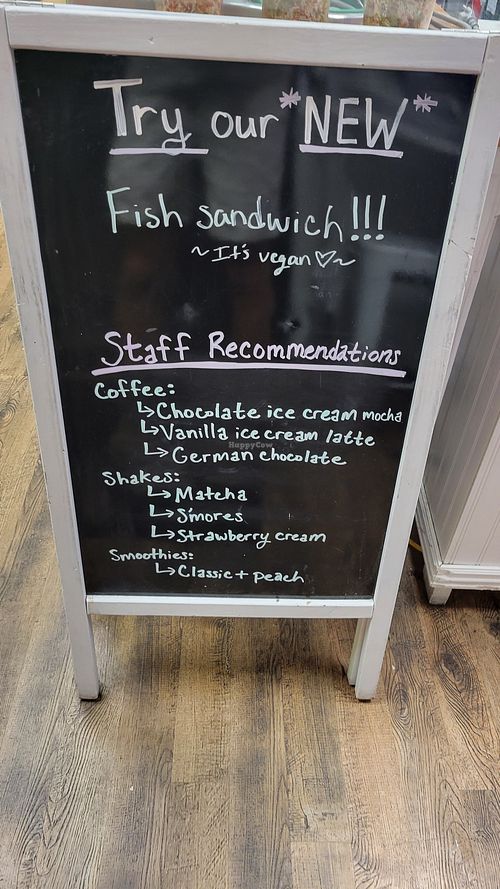 Try our *NEW*
Fish sandwich!!!
~It's vegan♡~
Staff Recommendations
Coffee:
↳Chocolate ice cream mocha
↳Vanilla ice cream latte
↳German chocolate
Shakes:
↳Matcha
↳S'mores
↳Strawberry cream
Smoothies:
↳Classic + peach
HappyCow